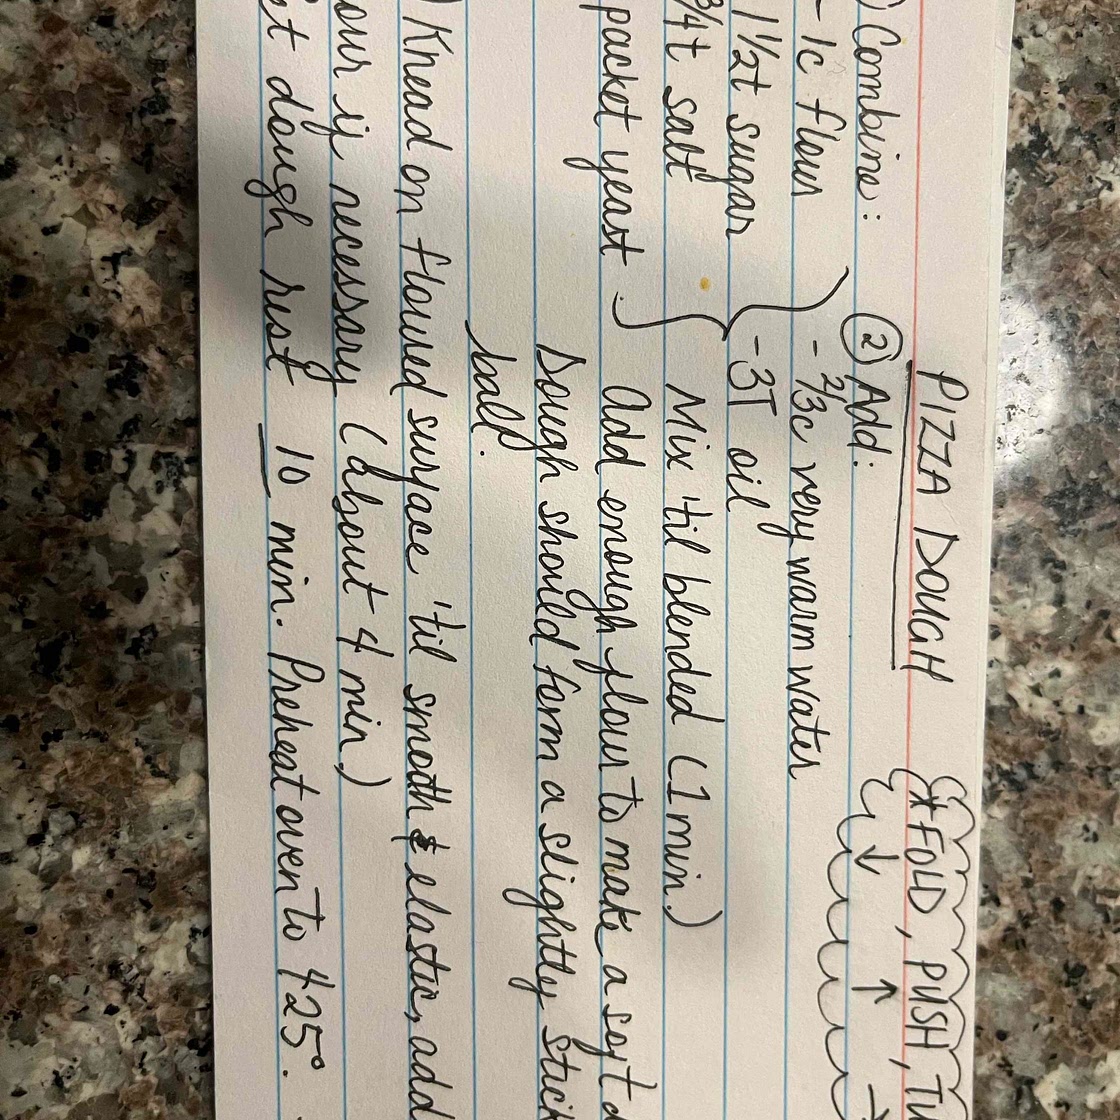 PIZZA DOUGH
*FOLD, PUSH,
Combine:
② Add:
- 1c flour
- 2/3c very warm water
1 1/2t sugar
-3T oil
3/4t salt
Mix 'til blended (1 min.)
packet yeast
Add enough flour to make a soft
Dough should form a slightly
ball.
Knead on floured surface 'til smooth & elastic, add
if necessary (About 4 min)
dough rest 10 min. Preheat oven to 425°.